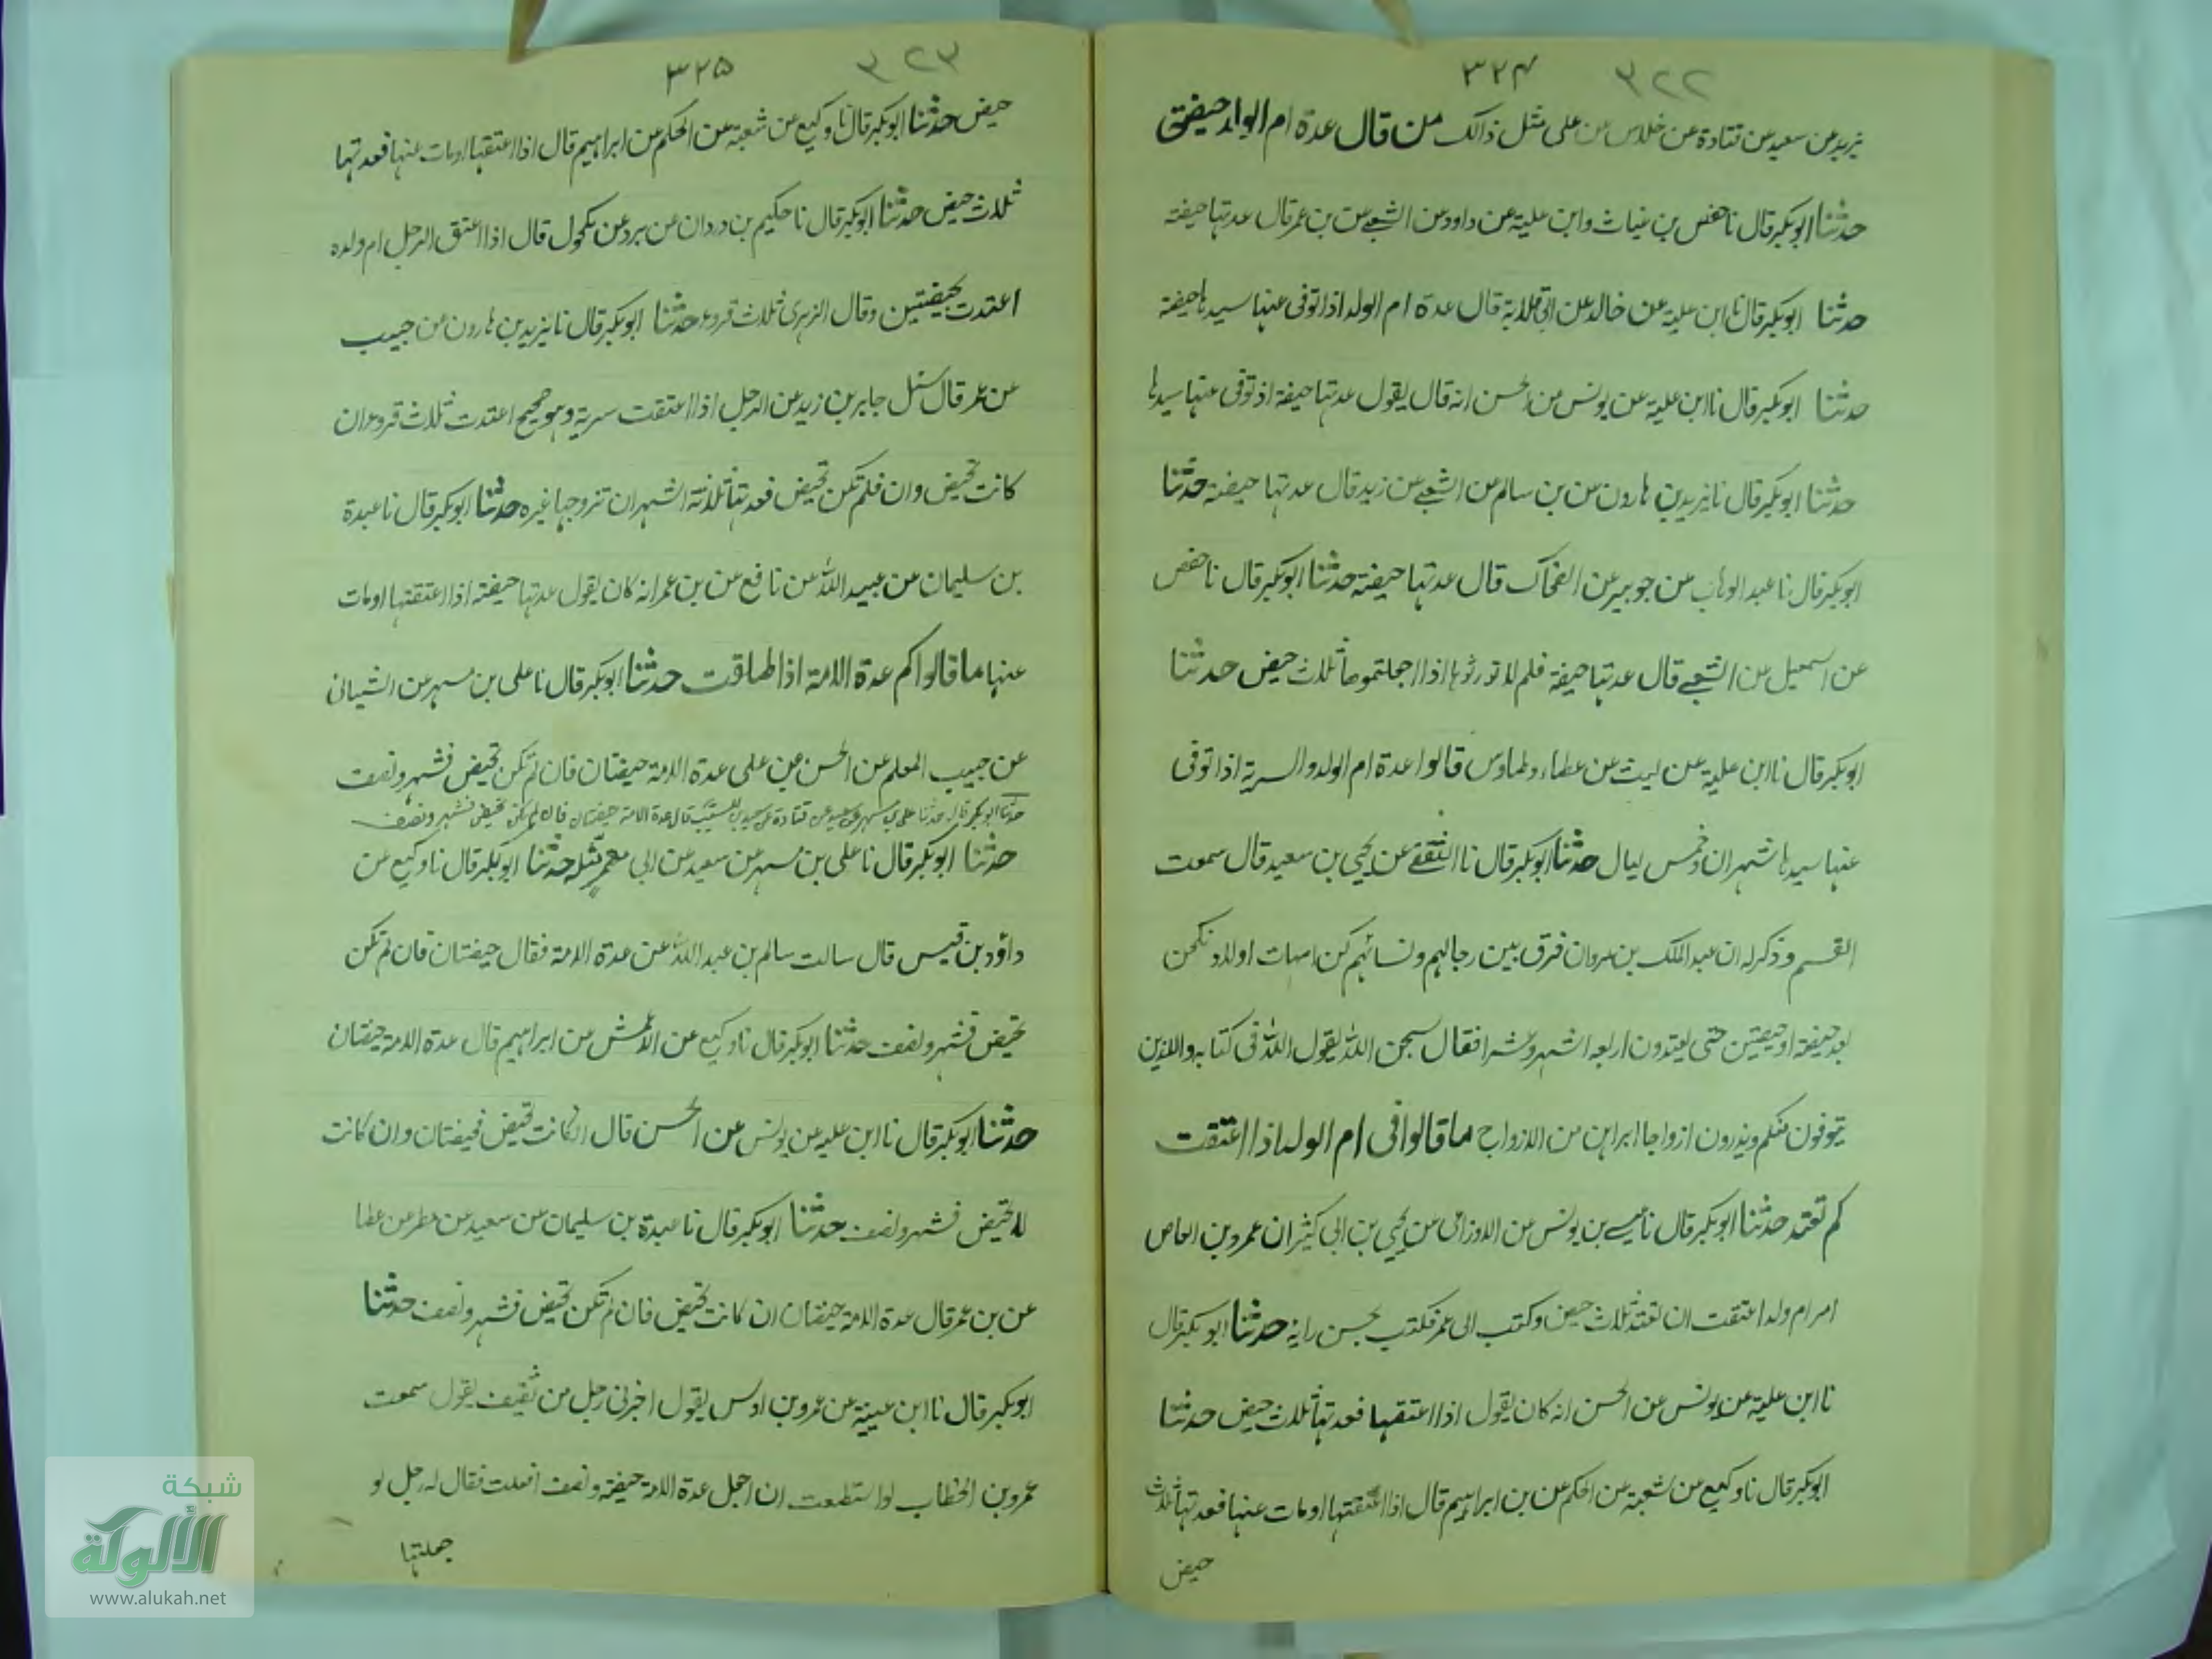 ٣٢٢ ٣٢٤
يزيد عن سعيد عن قتادة عن خلاس عن على مثل ذالك من قال عدة ام الولد حيضتى
حدثنا ابوبكر قال نا حفص بن غياث وابن علية عن داود عن الشعبے عن بن عمر قال عدتها حيضة
حدثنا ابوبكر قال نا ابن علية عن خالد عن ابى قلابة قال عدة ام الولد اذا توفى عنها سيدها حيضة
حدثنا ابوبكر قال نا ابن علية عن يونس عن الحسن انه قال يقول عدتها حيضة اذ توفى عنها سيدها
حدثنا ابوبكر قال نا يزيد بن هارون عن بن سالم عن الشعبے عن زيد قال عدتها حيضة حدثنا
ابوبكر قال نا عبد الوهاب عن جويبر عن الضحاك قال عدتها حيضة حدثنا ابوبكر قال نا حفص
عن اسمعيل عن الشعبے قال عدتها حيضة فلم لا تورثوها اذا اجعلتموها ثلاث حيض حدثنا
ابوبكر قال نا ابن علية عن ليث عن عطاء وطاوس قالوا عدة ام الولد والسرية اذا توفى
عنها سيدها شهران وخمس ليال حدثنا ابوبكر قال نا الثقفے عن يحيى بن سعيد قال سمعت
القسم وذكر له ان عبد الملك بن مروان فرق بين رجالهم ونسائهم كن امهات اولاد نكحن
بعد حيضة او حيضتين حتى يعتدون اربعة اشهر وعشرا فقال سبحن الله يقول الله فى كتابه والذين
يتوفون منكم ويذرون ازواجا ابراهن من الازواج ما قالوا فى ام الولد اذا اعتقت
كم تعتد حدثنا ابوبكر قال نا عيسے بن يونس عن الاوزاعى عن يحيى بن ابى كثير ان عمرو بن العاص
امر ام ولد اعتقت ان تعتد ثلاث حيض وكتب الى عمر فكتب بحسن رايه حدثنا ابوبكر قال
نا ابن علية عن يونس عن الحسن انه كان يقول اذا اعتقها فعدتها ثلاث حيض حدثنا
ابوبكر قال نا وكيع عن شعبة عن الحكم عن بن ابراهيم قال اذا اعتقتها اومات عنها فعدتها ثلاث
حيض
٣٢٣ ٣٢٥
حيض حدثنا ابوبكر قال نا وكيع عن شعبة عن الحكم عن ابراهيم قال اذا اعتقها اومات عنها فعدتها
ثلاث حيض حدثنا ابوبكر قال نا حكيم بن دردان عن برد عن مكحول قال اذا اعتق الرجل ام ولده
اعتدت بحيضتين وقال الزهرى ثلاث قروء حدثنا ابوبكر قال نا يزيد بن هارون عن حبيب
عن عمر قال سئل جابر بن زيد عن الرجل اذا اعتقت سرية وهو صحيح اعتدت ثلاث قروء ان
كانت تحيض وان فلم تكن تحيض فعدتها ثلاثة اشهر ان تزوجها غيره حدثنا ابوبكر قال نا عبدة
بن سليمان عن عبيد الله عن نافع عن بن عمر انه كان يقول عدتها حيضة اذا اعتقتها اومات
عنها ما قالوا كم عدة الامة اذا طلقت حدثنا ابوبكر قال نا على بن مسهر عن الشيبانى
عن حبيب المعلم عن الحسن عن على عدة الامة حيضتان فان لم تكن تحيض فشهر ونصف
حدثنا ابوبكر قال حدثنا على بن مسهر عن سعيد عن قتادة عن سعيد بن المسيب قال عدة الامة حيضتان فان لم تكن تحيض فشهر ونصف
حدثنا ابوبكر قال نا على بن مسهر عن سعيد عن ابى معمر مثله حدثنا ابوبكر قال نا وكيع عن
داؤد بن قيس قال سالت سالم بن عبد الله عن عدة الامة فقال حيضتان فان لم تكن
تحيض فشهر ونصف حدثنا ابوبكر قال نا وكيع عن الاعمش عن ابراهيم قال عدة الامة حيضتان
حدثنا ابوبكر قال نا ابن علية عن يونس عن الحسن قال ان كانت تحيض فحيضتان وان كانت
لا تحيض فشهر ونصف حدثنا ابوبكر قال نا عبدة بن سليمان عن سعيد عن مطر عن عطا
عن بن عمر قال عدة الامة حيضتان ان كانت تحيض فان لم تكن تحيض فشهر ونصف حدثنا
ابوبكر قال نا ابن عيينة عن عمرو بن اوس يقول اخبرنى رجل من ثقيف يقول سمعت
عمر بن الخطاب لو استطعت ان اجعل عدة الامة حيضة ونصف افعلت فقال له رجل لو
جعلتها
شبكة
الألوكة
www.alukah.net